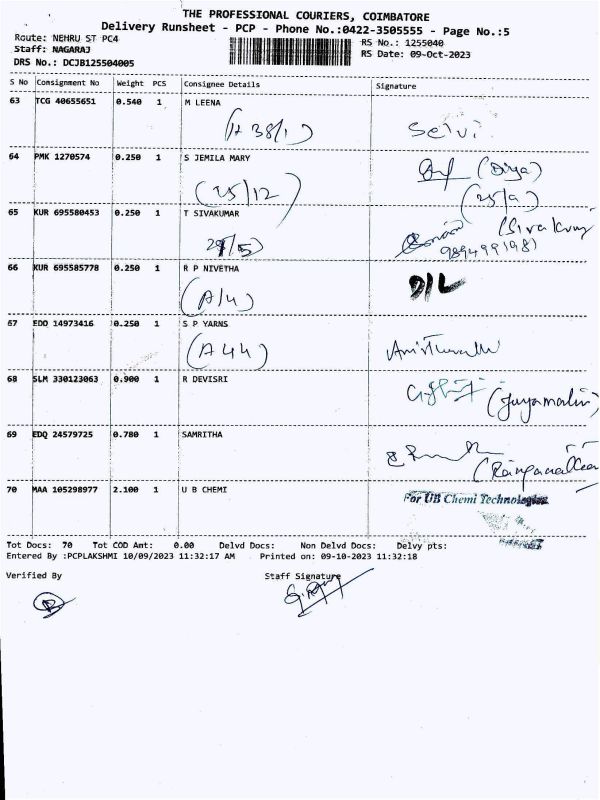 THE PROFESSIONAL COURIERS, COIMBATORE
Delivery Runsheet - PCP - Phone No.:0422-3505555 - Page No.:5
Route: NEHRU ST PC4
RS No.: 1255040
Staff: NAGARAJ
RS Date: 09-Oct-2023
DRS No.: DCJB125504005
S No Consignment No Weight PCS Consignee Details Signature
63 TCG 40655651 0.540 1 M LEENA
Selvi
64 PMK 1270574 0.250 1 S JEMILA MARY
(Diya)
(25/12) (25/9)
65 KUR 695580453 0.250 1 T SIVAKUMAR
(Sivakumar
9894991981
66 KUR 695585778 0.250 1 R P NIVETHA
(A/4) D/L
67 EDO 14973416 0.250 1 S P YARNS
(A44)
68 SLM 330123063 0.900 1 R DEVISRI
69 EDQ 24579725 0.780 1 SAMRITHA
70 MAA 105298977 2.100 1 U B CHEMI
For UB Chemi Technologies
Tot Docs: 70 Tot COD Amt: 0.00 Delvd Docs: Non Delvd Docs: Delvy pts:
Entered By :PCPLAKSHMI 10/09/2023 11:32:17 AM Printed on: 09-10-2023 11:32:18
Verified By Staff Signature